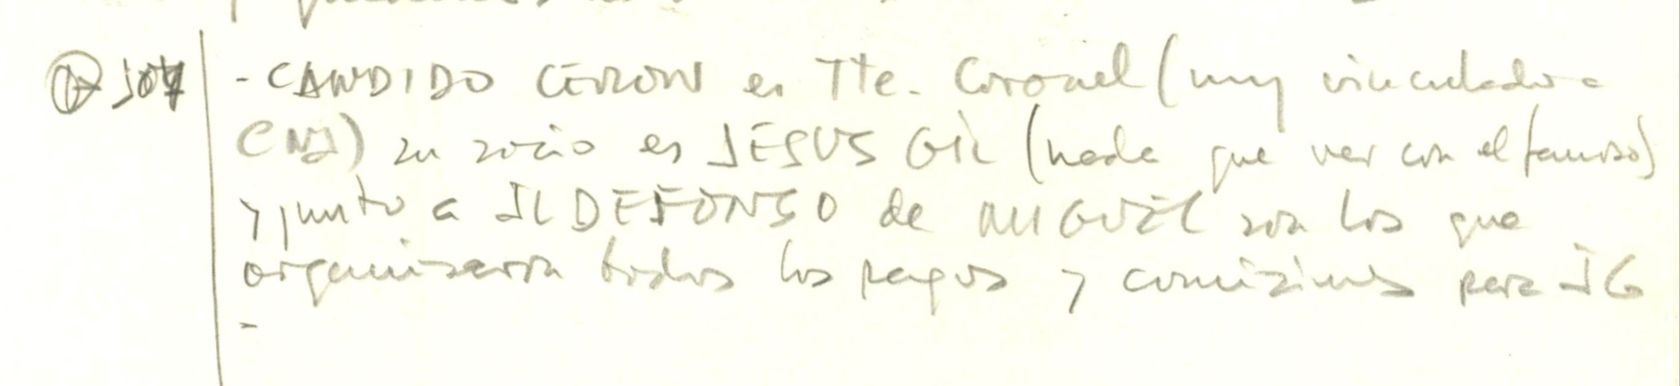 - CANDIDO CERON es Tte. Coronel (muy vinculado a
CNI) su socio es JESUS GIL (nada que ver con el famoso)
y junto a ILDEFONSO de MIGUEL son los que
organizaron todos los pagos y comisiones para IG
-